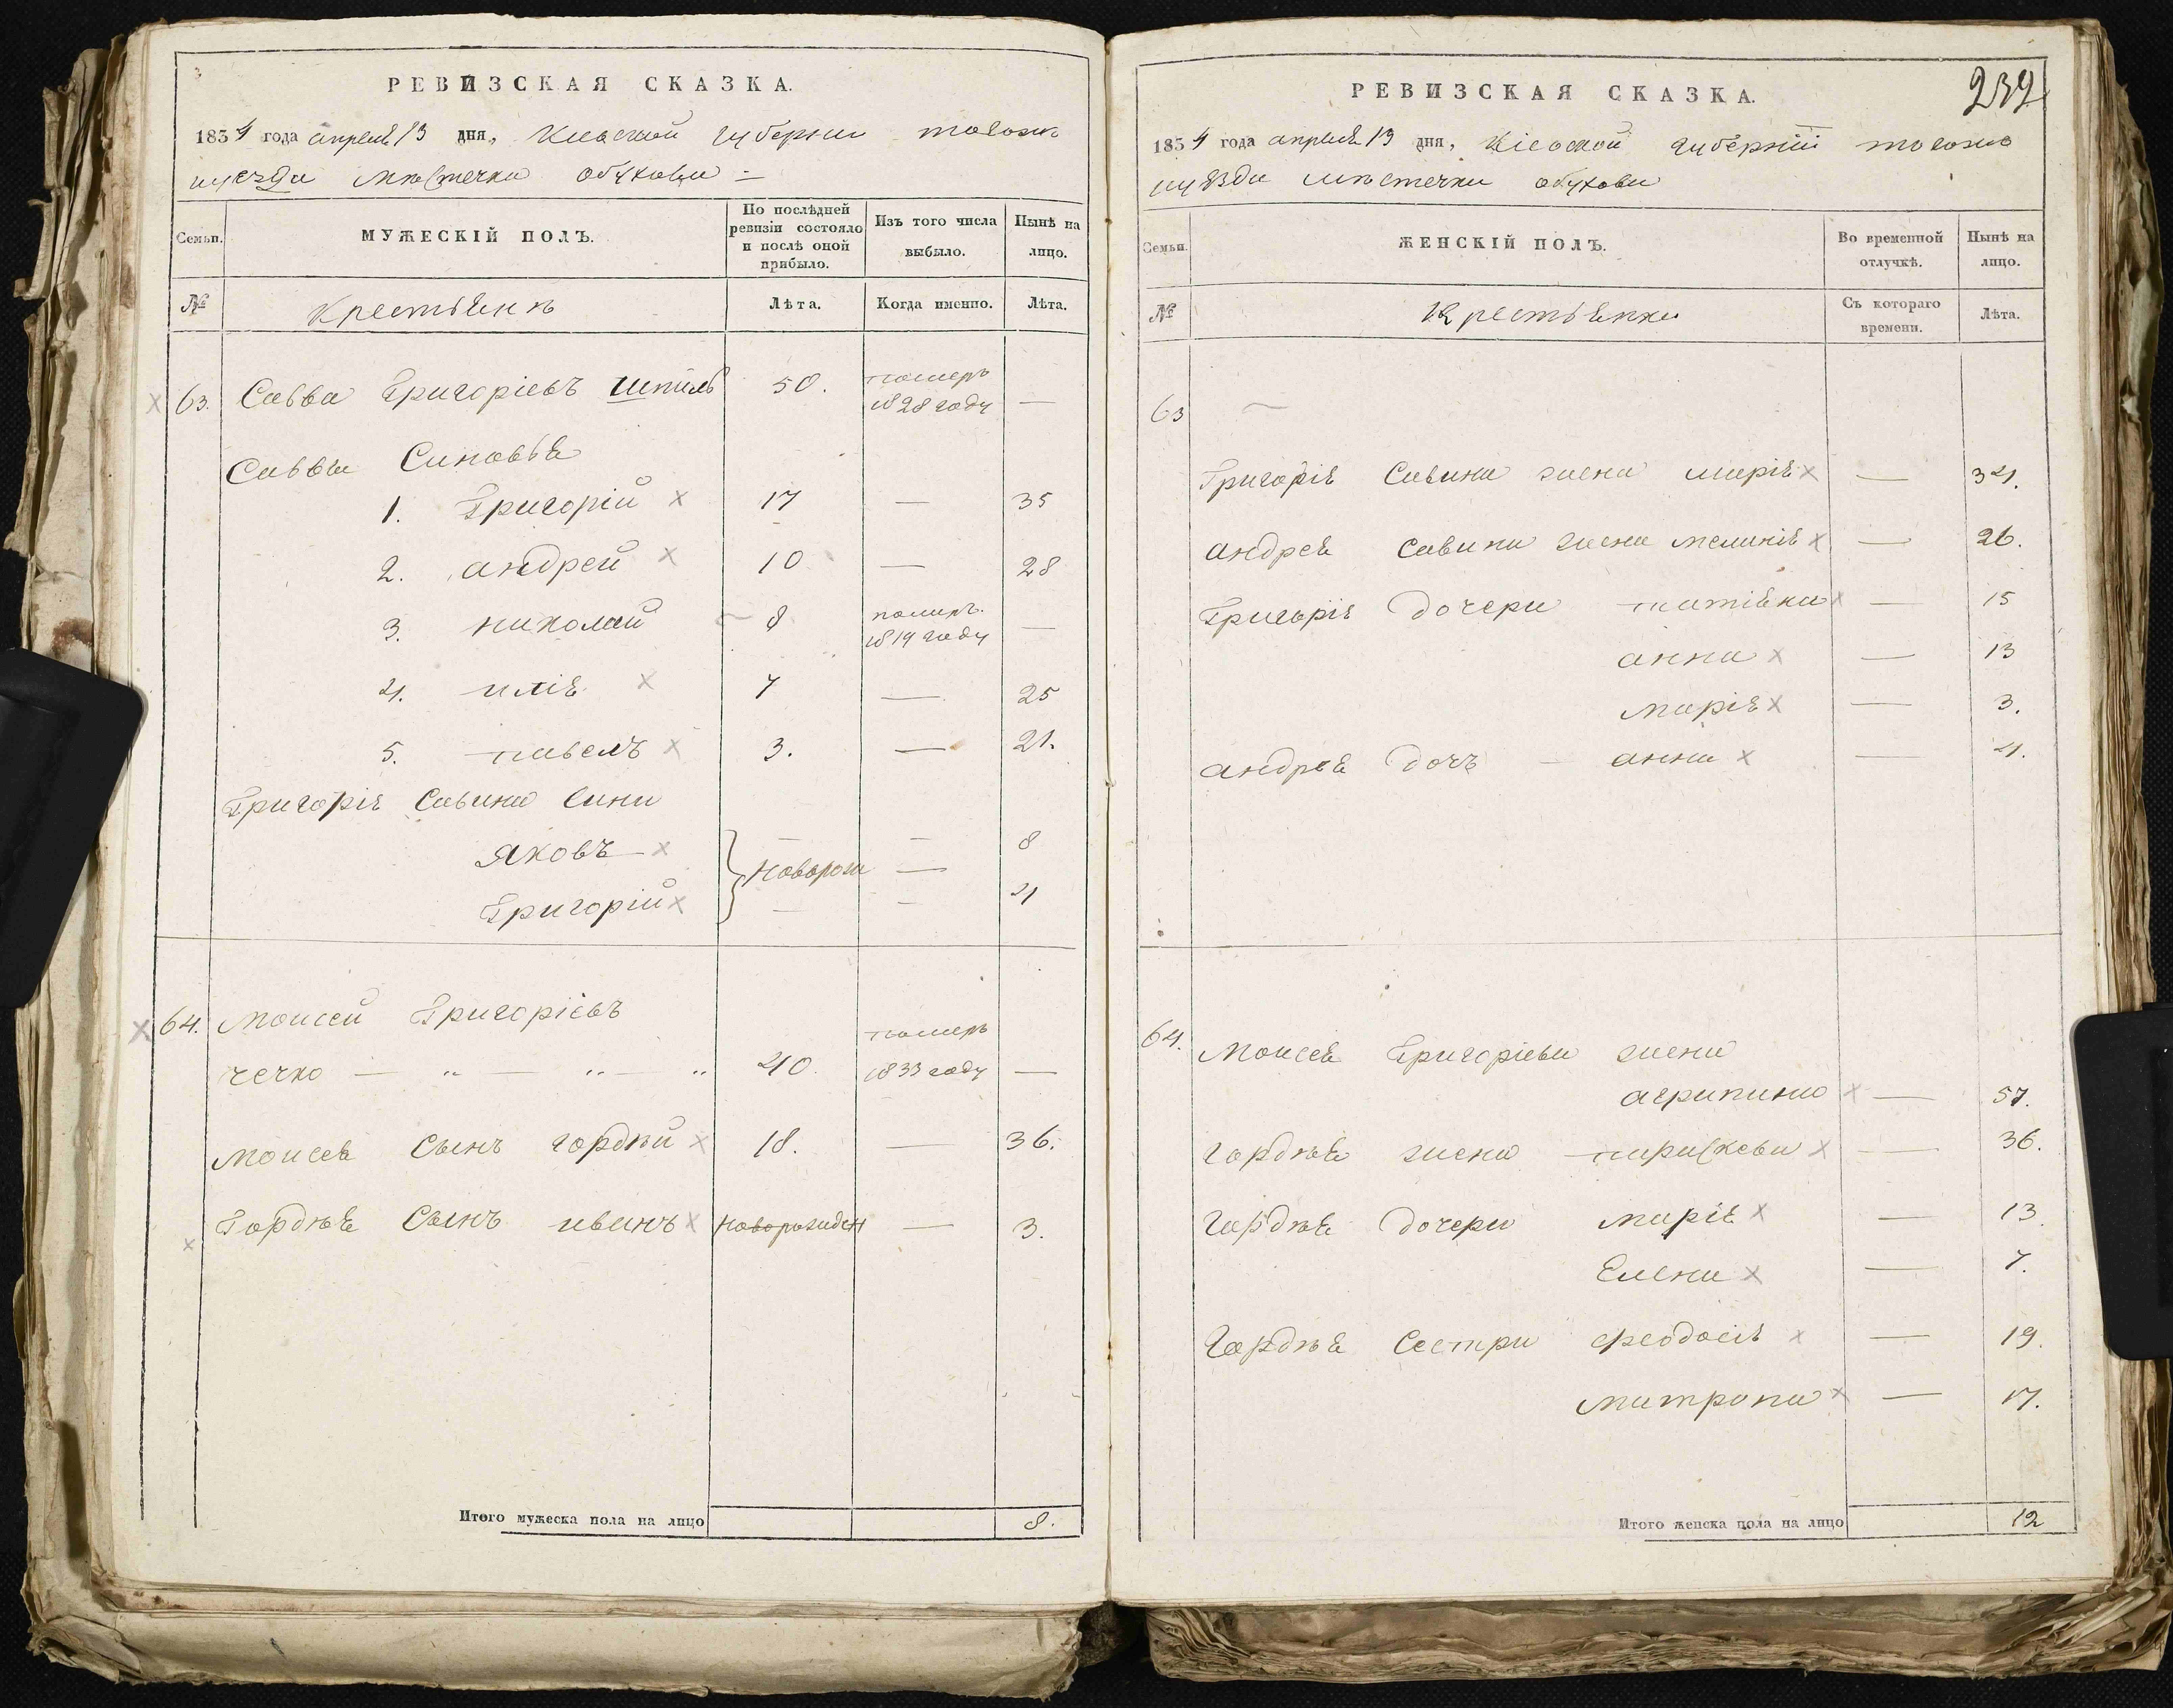 РЕВИЗСКАЯ СКАЗКА.
1834 года апреля 13 дня, Киевской губернии тогожъ
уезда местечка обухова =
Семьи. МУЖЕСКІЙ ПОЛЪ. По послѣдней ревизіи состояло и послѣ оной прибыло. Изъ того числа выбыло. Нынѣ на лицо.
№ Крестьянъ Лѣта. Когда именно. Лѣта.
63. Савва Григоріевъ Шпиль 50. померъ 1828 году —
Саввы Синовья
1. Григорій 17 — 35
2. андрей 10 — 28
3. николай 8 померъ. 1819 году —
4. илія 7 — 25
5. павелъ 3. — 21.
Григорія Савина Сини
Яковъ — 8
новорож —
Григорій — 4
64. Моисей Григоріевъ
чечко — „ — „ — „ 40. померъ 1833 году —
Моисея Сынъ гордѣй 18. — 36.
Гордѣя Сынъ иванъ новорожден — 3.
Итого мужеска пола на лицо 8.
РЕВИЗСКАЯ СКАЗКА.
232
1834 года апреля 13 дня, Кіевской губерніи тогожъ
уѣзда мѣстечка обухова
Семьи. ЖЕНСКІЙ ПОЛЪ. Во временной отлучкѣ. Нынѣ на лицо.
№ Крестьянки Съ котораго времени. Лѣта.
63 —
Григорія Савина жена марія — 34.
андрея Савина жена меланія — 26.
Григорія дочери татіяна — 15
анна — 13
марія — 3.
андрея дочъ — анна — 4.
64. Моисея Григоріева жена
агрипина — 57.
гордѣя жена параскева — 36.
гордѣя дочери марія — 13.
Елена — 7.
гордѣя Сестри феодосія — 19.
матрона — 17.
Итого женска пола на лицо 12